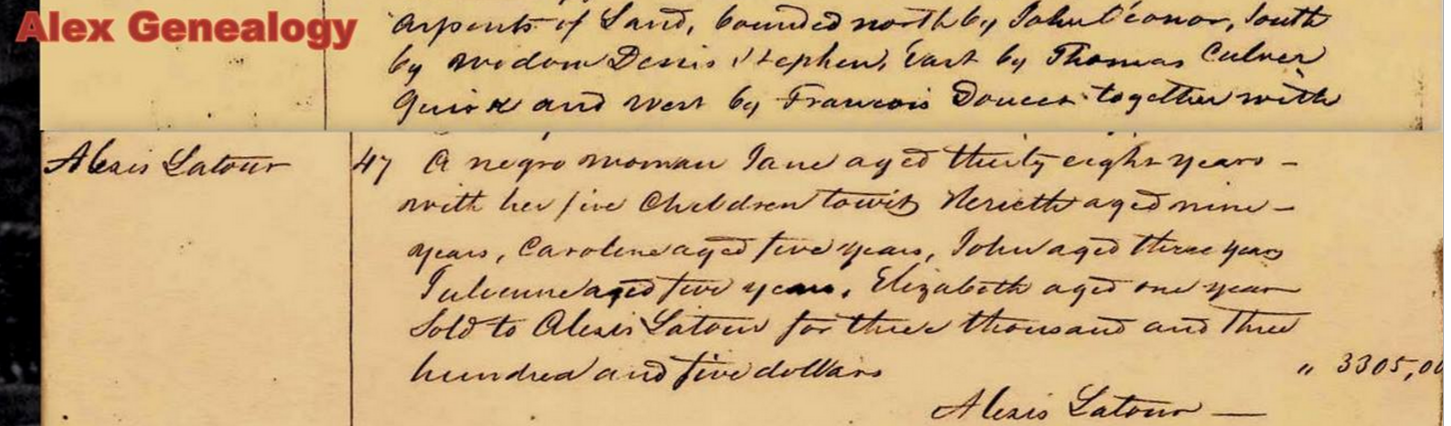 Alex Genealogy
arpents of Land, bounded north by John Conor, South
by widow Denis Stephen, East by Thomas Culver
Quirk and West by Francois Doucet together with
Alexis Latour 47 A negro woman Jane aged thirty eight years –
with her five Children towit aged nine –
years, Caroline aged five years, John aged three years
Julienne aged five years, Elizabeth aged one year
Sold to Alexis Latour for three thousand and three
hundred and five dollars " 3305,00
Alexis Latour —